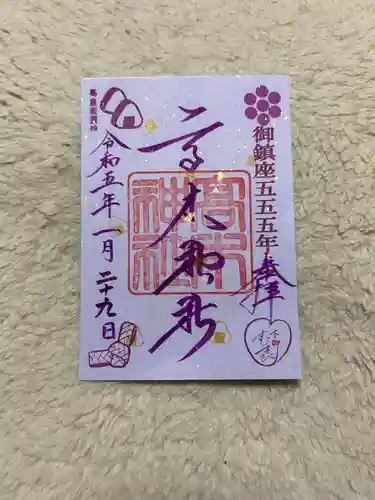 御鎮座五五五年
奉拝
高木神社
高木神社
令和五年一月二十九日